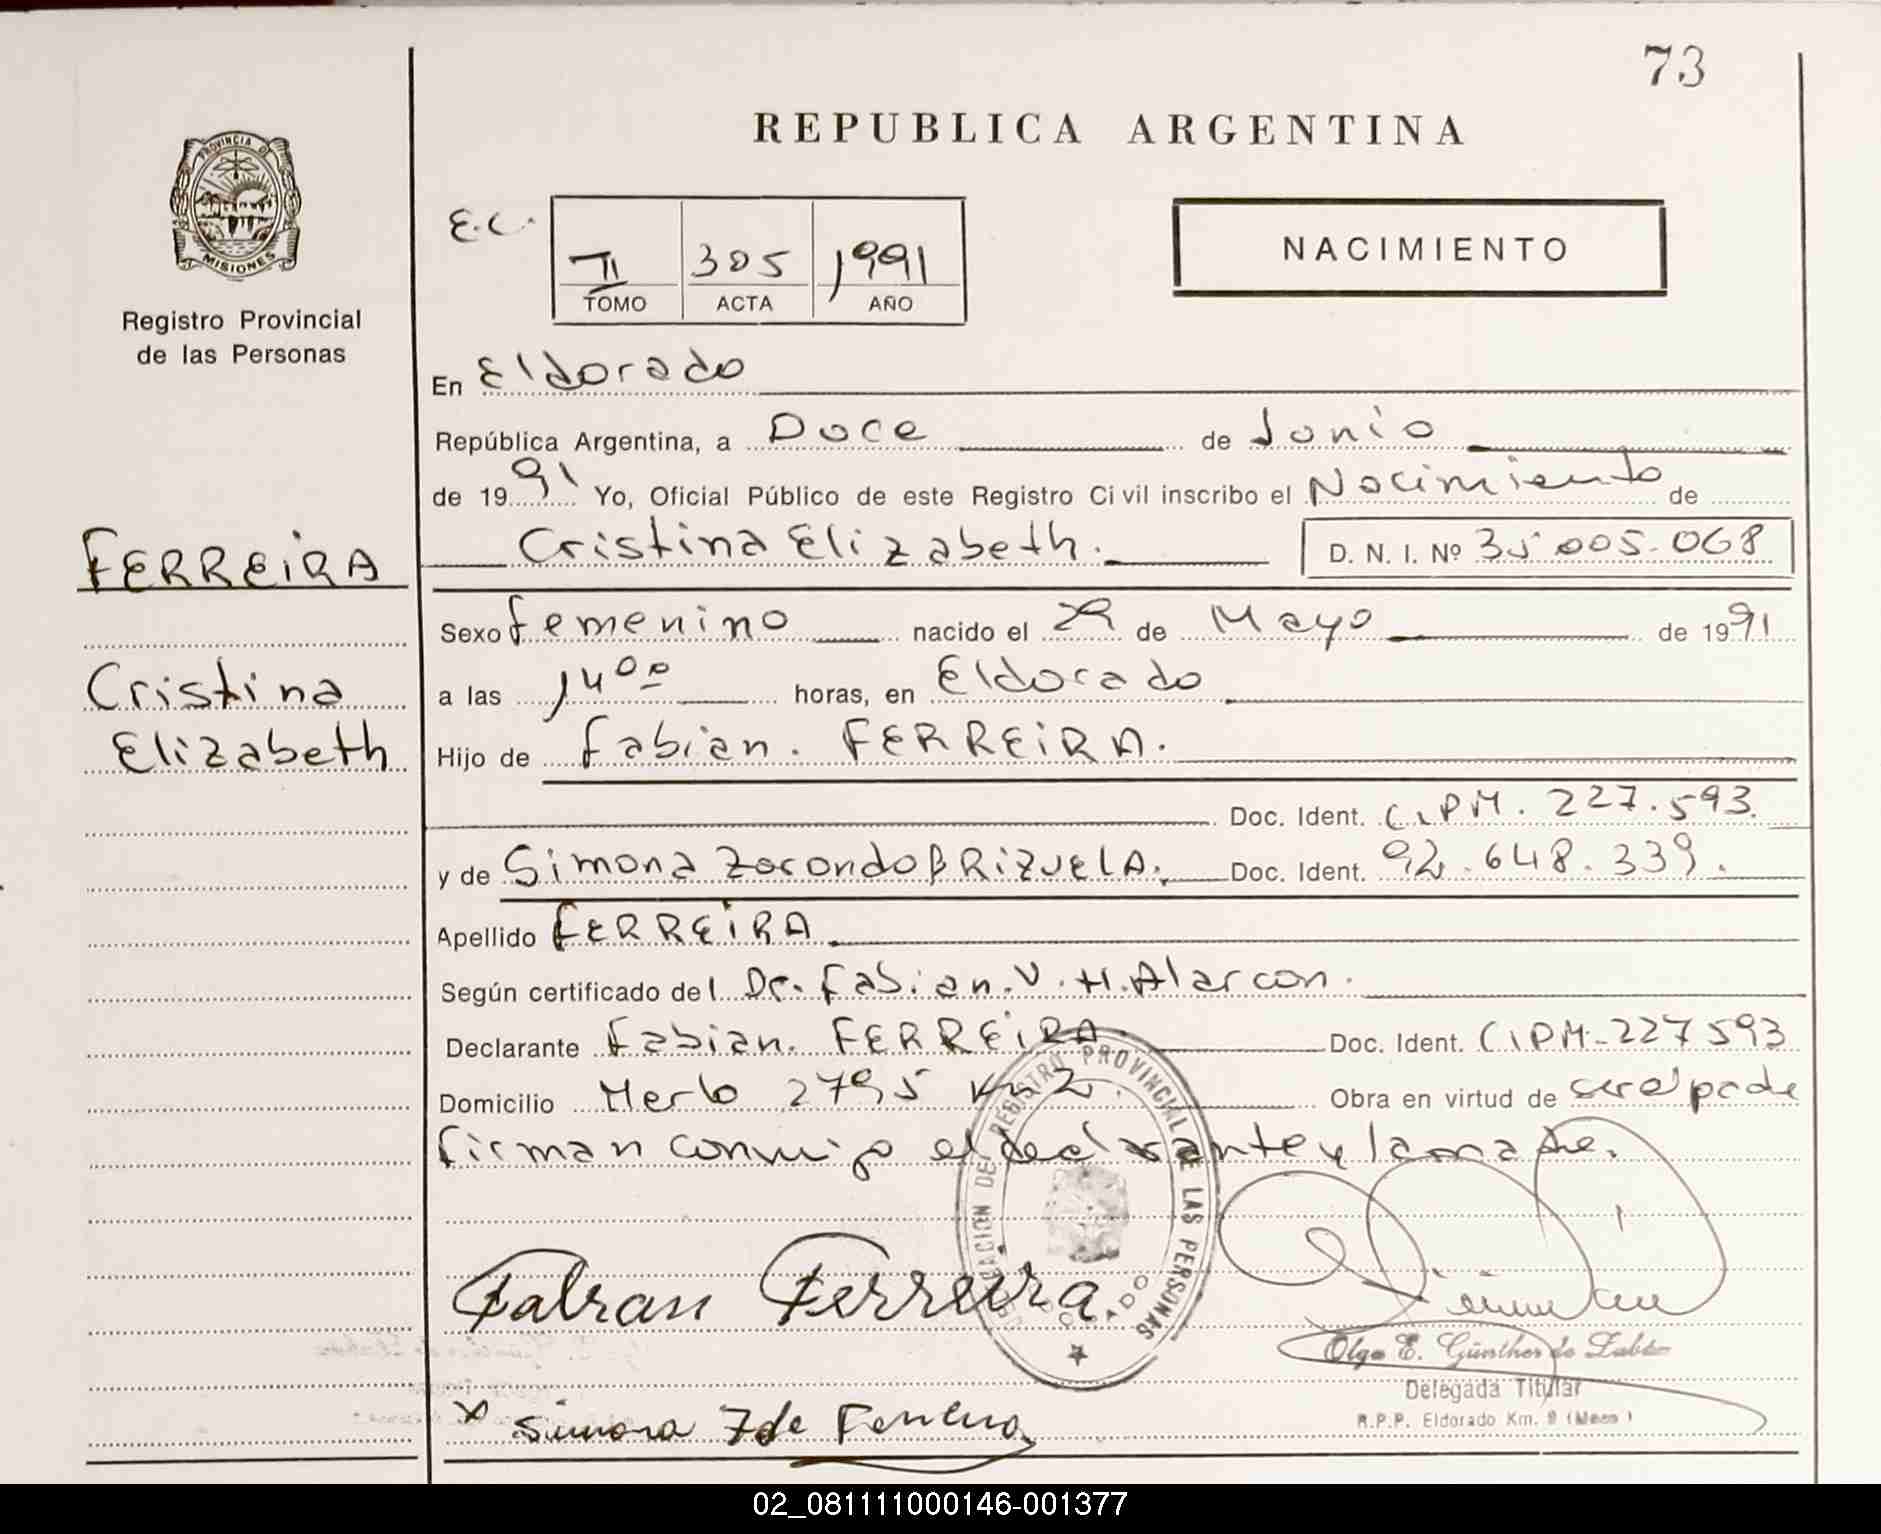 73
REPUBLICA ARGENTINA
PROVINCIA DE
MISIONES
Registro Provincial
de las Personas
E.C.
II 305 1991
TOMO ACTA AÑO
NACIMIENTO
En Eldorado
República Argentina, a Doce de Junio
de 1991 Yo, Oficial Público de este Registro Civil inscribo el Nacimiento de
Cristina Elizabeth. D. N. I. Nº 35.005.068
FERREIRA
Cristina
Elizabeth
Sexo femenino nacido el 29 de Mayo de 1991
a las 14 00 horas, en Eldorado
Hijo de Fabian. FERREIRA.
Doc. Ident. C.I.P.M. 227.593.
y de Simona Zorondo BRIZUELA. Doc. Ident. 92.648.339.
Apellido FERREIRA
Según certificado del Dr. Fabian. V. H. Alarcon.
Declarante Fabian. FERREIRA. Doc. Ident. CIPM-227593
Domicilio Merlo 2795 Km 2. Obra en virtud de ser el padre
firman conmigo el declarante y la madre.
DELEGACION DE REGISTRO PROVINCIAL DE LAS PERSONAS
ELDORADO
Fabian Ferreira
Olga E. Günther de Zabto
Delegada Titular
R.P.P. Eldorado Km. 9 (Mnes)
x Simona Z de Ferreira
02_081111000146-001377